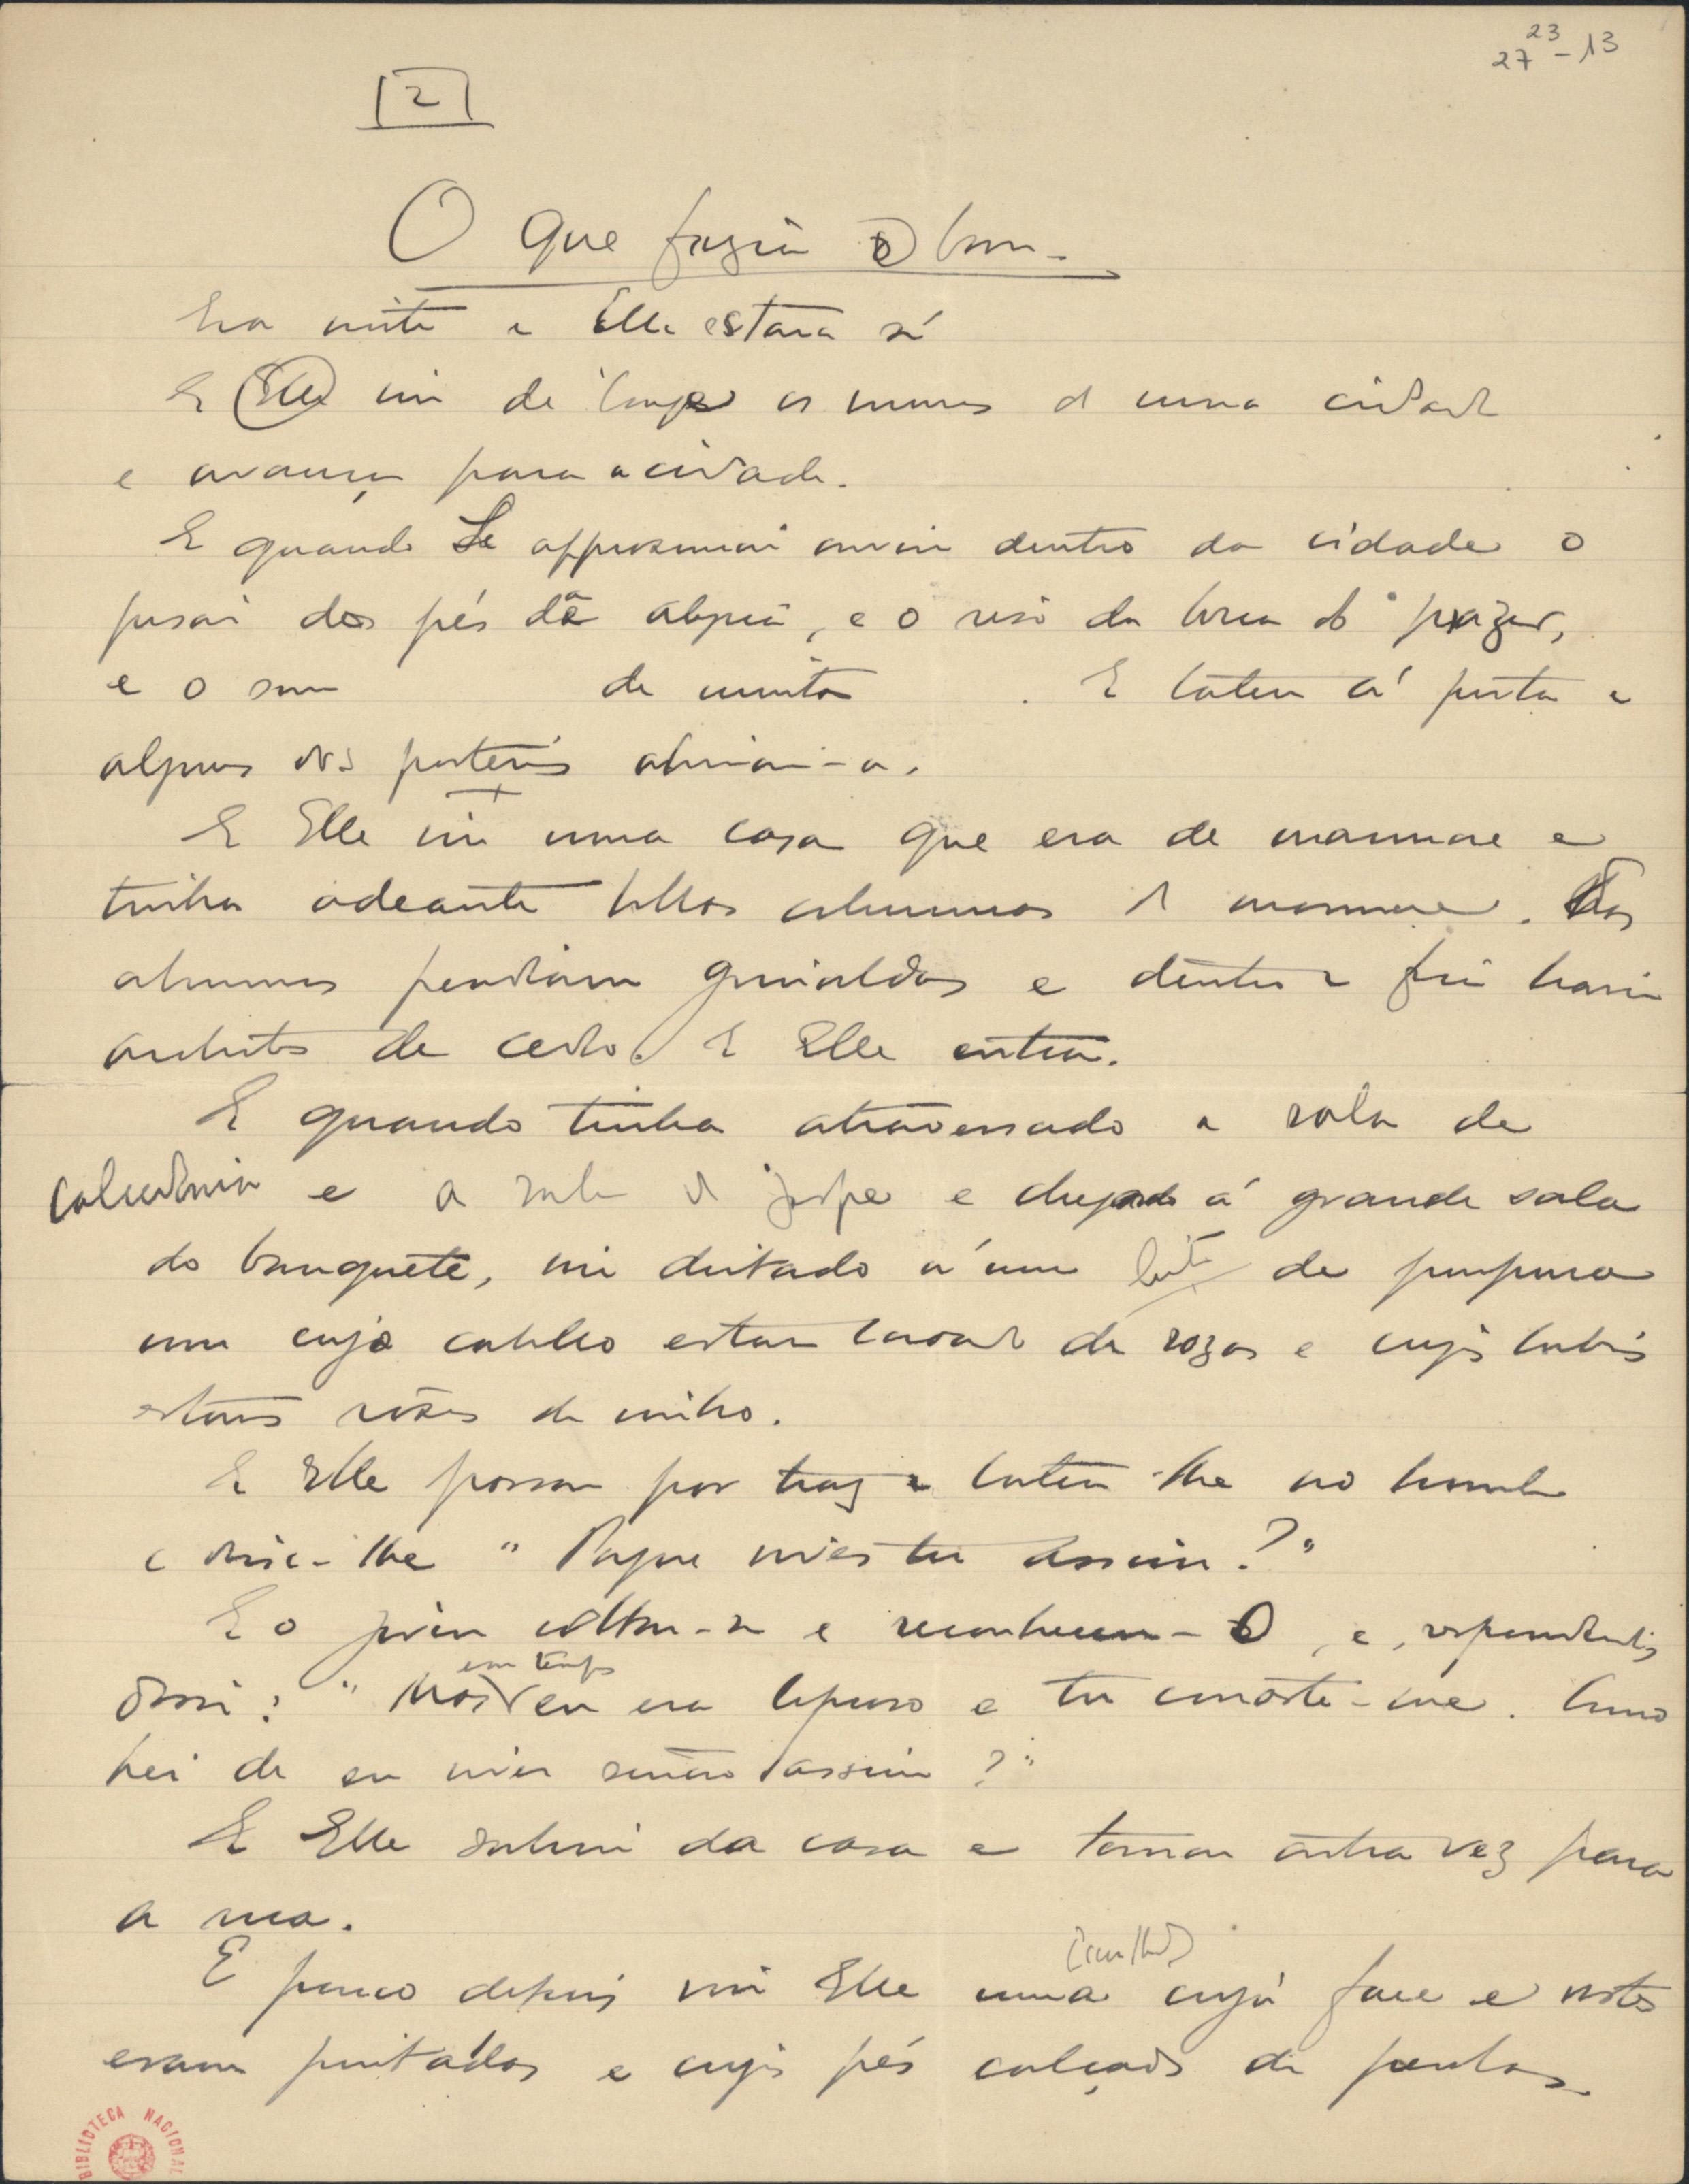 27 23 - 13
2
O que fazia o bem.
Era noite e Elle estava só
E Elle viu de longe os muros d uma cidade
e avançou para a cidade.
E quando Se approximou ouviu dentro da cidade o
pisar dos pés da alegria, e o riso da boca do prazer,
e o som de muitos . E bateu á porta e
alguns dos porteiros abriram-a.
E Elle viu uma casa que era de marmore e
tinha adeante bellas columnas de marmore. Das
columnas pendiam grinaldas e dentro e fora havia
archotes de cedro. E Elle entrou.
E quando tinha atravessado a sala de
calcedonia e a sala de jaspe e chegado á grande sala
do banquete, viu deitado n'um leito de purpura
um cujo cabello estava coroado de rozas e cujos labios
estavam roxos de vinho.
E Elle passou por traz e bateu-lhe no hombro
e disse-lhe "Porque vives tu assim?"
E o joven voltou-se e reconheceu-O, e, respondendo,
disse: "Mas eu era leproso e tu curaste-me. Como
em tempo
hei de eu viver senão assim?"
E Elle sahiu da casa e tornou outra vez para
a rua.
E pouco depois viu Elle uma cuja face e vestes
eram pintadas e cujos pés calçados de perolas
BIBLIOTECA NACIONAL